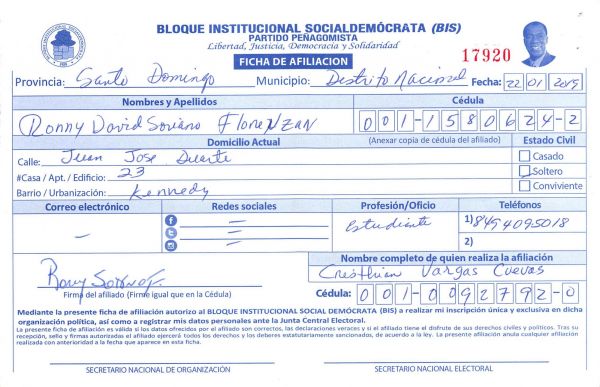 BLOQUE INSTITUCIONAL SOCIALDEMÓCRATA (BIS)
PARTIDO PEÑAGOMISTA
Libertad, Justicia, Democracia y Solidaridad
FICHA DE AFILIACION
17920
Provincia: Santo Domingo Municipio: Distrito Nacional Fecha: 22 01 2015
Nombres y Apellidos Cédula
Ronny David Soriano Florenzan 001-1580624-2
Domicilio Actual (Anexar copia de cédula del afiliado) Estado Civil
Calle: Juan Jose Duarte Casado
#Casa / Apt. / Edificio: 23 Soltero
Barrio / Urbanización: Kennedy Conviviente
Correo electrónico Redes sociales Profesión/Oficio Teléfonos
Estudiante 1) 8494095018
2)
Nombre completo de quien realiza la afiliación
Cresthian Vargas Cuevas
Firma del afiliado (Firme igual que en la Cédula) Cédula: 001-0092792-0
Mediante la presente ficha de afiliación autorizo al BLOQUE INSTITUCIONAL SOCIAL DEMÓCRATA (BIS) a realizar mi inscripción única y exclusiva en dicha
organización política, así como a registrar mis datos personales ante la Junta Central Electoral.
La presente ficha de afiliación es válida si los datos ofrecidos por el afiliado son correctos, las declaraciones veraces y si el afiliado tiene el disfrute de sus derechos civiles y políticos. Tras su
recepción, sello y firmas autorizadas el afiliado ejercerá todos los derechos y los deberes estatutariamente sancionados, de acuerdo a la ley. La presente afiliación anula cualquier afiliación
realizada con anterioridad a la fecha que aparece en esta ficha.
SECRETARIO NACIONAL DE ORGANIZACIÓN SECRETARIO NACIONAL ELECTORAL